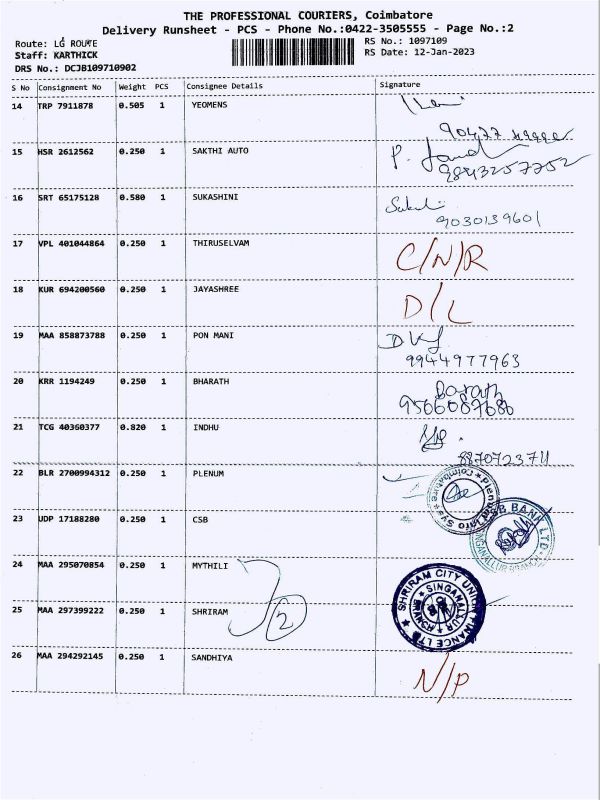 THE PROFESSIONAL COURIERS, Coimbatore
Delivery Runsheet - PCS - Phone No.:0422-3505555 - Page No.:2
Route: LG ROUTE
RS No.: 1097109
Staff: KARTHICK
RS Date: 12-Jan-2023
DRS No.: DCJB109710902
S No Consignment No Weight PCS Consignee Details Signature
14 TRP 7911878 0.505 1 YEOMENS
90477
15 HSR 2612562 0.250 1 SAKTHI AUTO P.
9843257752
16 SRT 65175128 0.580 1 SUKASHINI
9030139601
17 VPL 401044864 0.250 1 THIRUSELVAM C/N/R
18 KUR 694200560 0.250 1 JAYASHREE D/L
19 MAA 858873788 0.250 1 PON MANI
9944977963
20 KRR 1194249 0.250 1 BHARATH Barath
9566087686
21 TCG 40360377 0.820 1 INDHU
8870723711
22 BLR 2700994312 0.250 1 PLENUM Plenum Info Sys Coimbatore
23 UDP 17188280 0.250 1 CSB CSB BANK LTD. SINGANALLUR BRANCH
24 MAA 295070854 0.250 1 MYTHILI
25 MAA 297399222 0.250 1 SHRIRAM 2 SHRIRAM CITY UNION FINANCE LTD SINGANALLUR BRANCH
26 MAA 294292145 0.250 1 SANDHIYA N/P